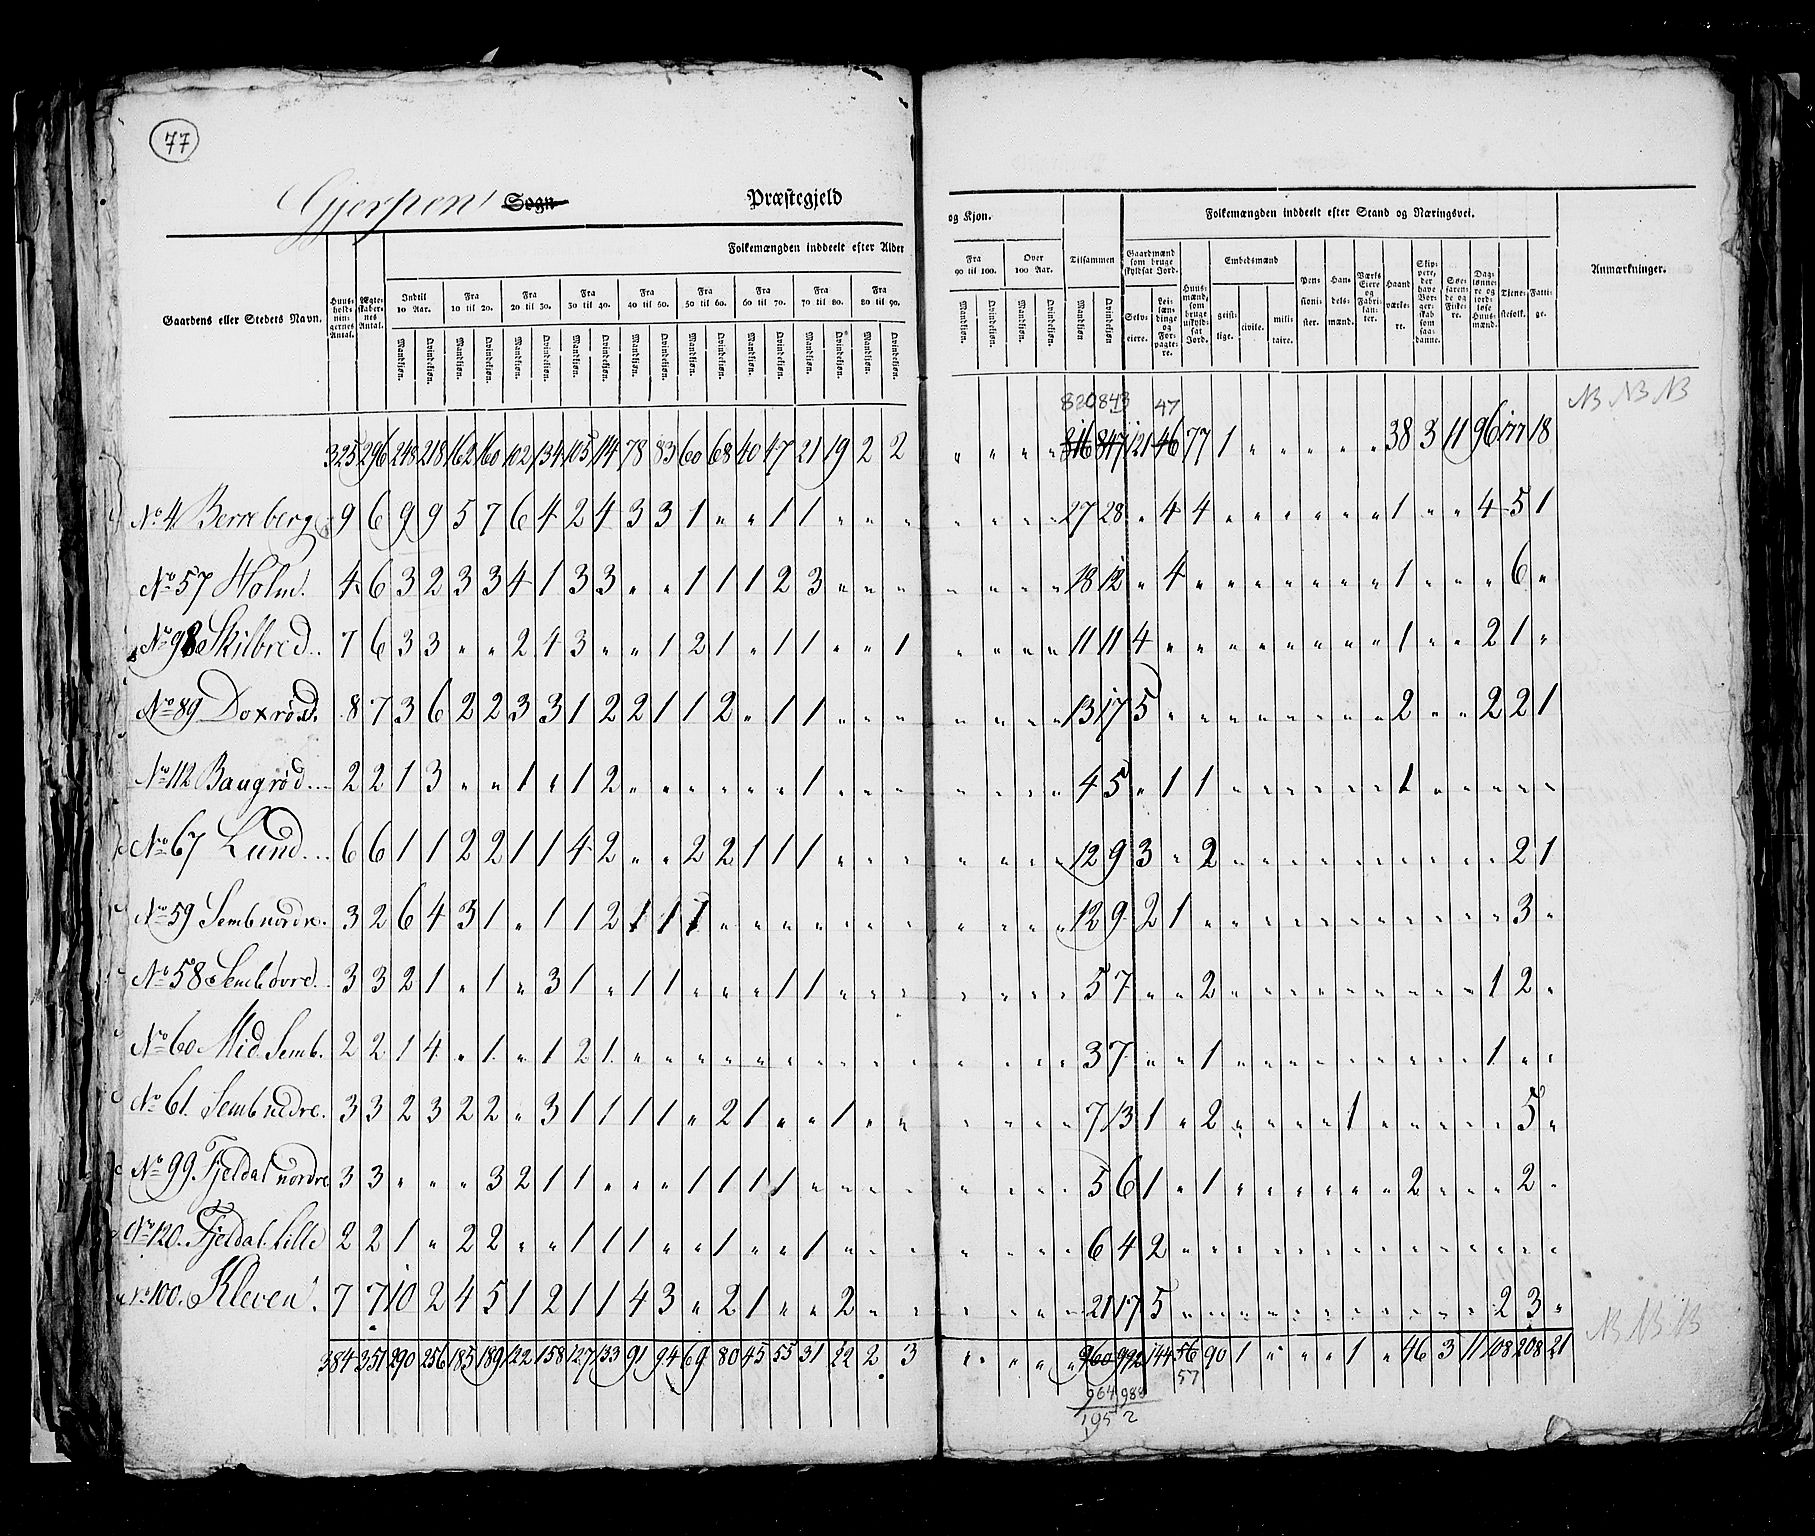 77
Gjerpens Sogn Præstegjeld
og Kjøn. Folkemængden inddeelt efter Stand og Næringsvei.
Folkemængden inddeelt efter Alder
Gaardens eller Stedets Navn. Huus-holdnin-gernes Antal. Ægte-skaber-nes Antal.
Indtil 10 Aar. Fra 10 til 20. Fra 20 til 30. Fra 30 til 40. Fra 40 til 50. Fra 50 til 60. Fra 60 til 70. Fra 70 til 80. Fra 80 til 90. Fra 90 til 100. Over 100 Aar. Tilsammen
Mandkjøn. Qvindekjøn. Mandkjøn. Qvindekjøn. Mandkjøn. Qvindekjøn. Mandkjøn. Qvindekjøn. Mandkjøn. Qvindekjøn. Mandkjøn. Qvindekjøn. Mandkjøn. Qvindekjøn. Mandkjøn. Qvindekjøn. Mandkjøn. Qvindekjøn. Mandkjøn. Qvindekjøn. Mandkjøn. Qvindekjøn. Mandkjøn Qvindekjøn
Gaardmænd som bruge skyldsat Jord. Selv-eiere. Lei-læn-dinge og For-pagte-re. Huus-mænd, som bruge uskyld-sat Jord. Embedsmænd geist-lige. civile. mili-taire. Pen-sioni-ster. Han-dels-mænd. Værks Eiere og Fabri-kan-ter. Haand værke-re. Skip-pere, der have Bor-ger-skab som saa-danne. Søe-faren-de og Fiske-re. Dag-lønne-re og jord-løse Huus-mænd. Tjene-stefolk. Fatti-ge. Anmærkninger.
820 843 47 NB NB NB
325 296 243 218 162 160 102 134 105 114 78 83 60 68 40 47 21 19 2 2 " " " " 816 847 121 46 77 1 " " " " " " 38 3 11 96 177 18
No 4 Berreberg 9 6 9 9 5 7 6 4 2 4 3 3 1 " " 1 1 " " " " " " " 27 28 " 4 4 " " " " " " " 1 " " 4 5 1
No 57 Holm. 4 6 3 2 3 3 4 1 3 3 " " 1 1 1 2 3 " " " " " " " 18 12 " 4 " " " " " " " " 1 " " " 6 "
No 98 Skilbred. 7 6 3 3 " " 2 4 3 " " 1 2 1 " 1 1 " " 1 " " " " 11 11 4 " " " " " " " " " 1 " " 2 1 "
No 89 Doxrød. 8 7 3 6 2 2 3 3 1 2 2 1 1 2 " 1 1 " " " " " " " 13 17 5 " " " " " " " " " 2 " " 2 2 1
No 112 Baugrød... 2 2 1 3 " " 1 " 1 2 " " " " " " 1 " " " " " " " 4 5 " 1 1 " " " " " " " 1 " " " " "
No 67 Lund... 6 6 1 1 2 2 1 1 4 2 " " 2 2 1 1 1 " " " " " " " 12 9 3 " 2 " " " " " " " " " " " 2 1
No 59 Semb nordre. 3 2 6 4 3 1 " 1 1 2 1 1 1 " " " " " " " " " " " 12 9 2 1 " " " " " " " " " " " " 3 "
No 58 Semb øvre. 3 3 2 1 " 1 " 3 1 " 1 1 " " " 1 1 " " " " " " " 5 7 " " 2 " " " " " " " " " " 1 2 "
No 60 Mid Semb. 2 2 1 4 " 1 " 1 2 1 " " " " " " " " " " " " " " 3 7 " " 1 " " " " " " " " " " 1 " "
No 61. Semb nedre. 3 3 2 3 2 2 " 3 1 1 1 1 " 2 1 " " 1 " " " " " " 7 13 1 " 2 " " " " 1 " " " " " 5 "
No 99. Fjeldal nordre 3 3 " " " 3 2 1 1 " " " 1 1 1 1 " " " " " " " " 5 6 1 " 1 " " " " " " " 2 " " " 2 "
No 120. Fjeldal lille 2 2 1 " 2 2 " " 1 1 1 " " 1 " " 1 " " " " " " " 6 4 2 " " " " " " " " " " " " " " "
No 100. Kleven. 7 7 10 2 4 5 1 2 1 1 4 3 " 2 1 " " 2 " " " " " " 21 17 5 " " " " " " " " " " " " 2 3 "
384 351 290 256 185 189 122 158 127 133 91 94 69 80 45 55 31 22 2 3 " " " " 960 992 144 56 90 1 " " " " 1 " 46 3 11 108 208 21
NB NB NB
964 988 57
1952